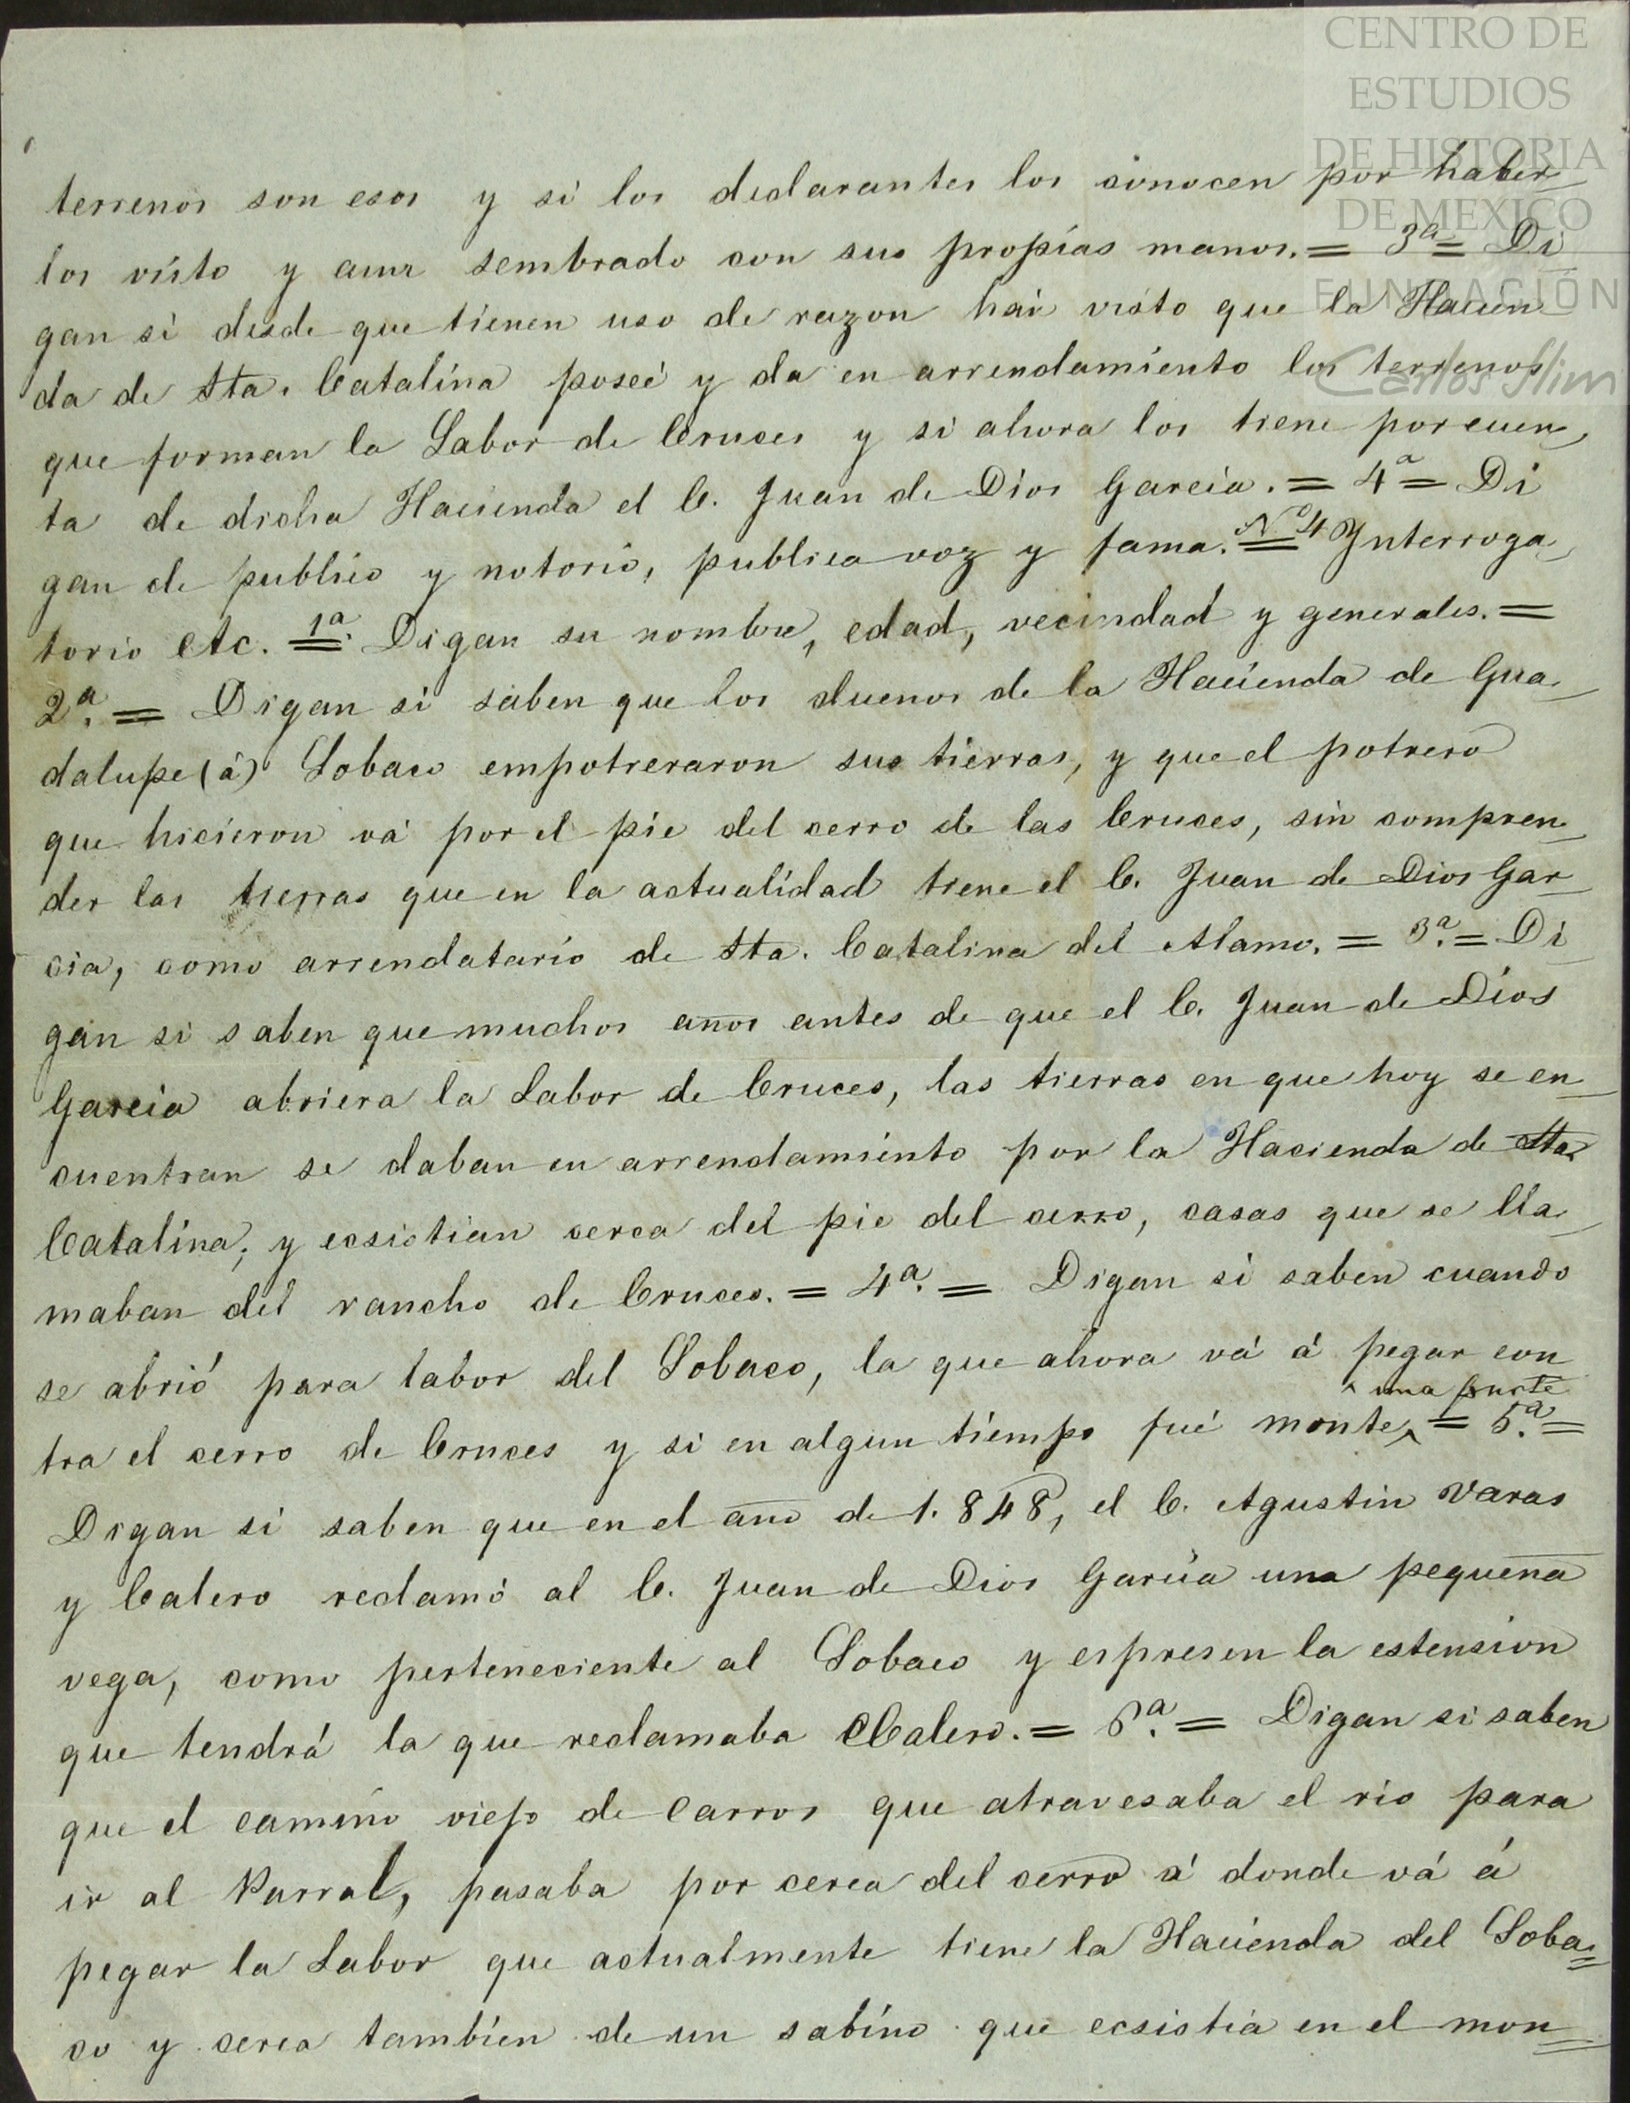 CENTRO DE
ESTUDIOS
DE HISTORIA
DE MEXICO
FUNDACIÓN
Carlos Slim
terrenos son esos y si los declarantes los conocen por haber
los visto y aun sembrado con sus propias manos. = 3ª = Di
gan si desde que tienen uso de razon han visto que la Hacien
da de Sta. Catalina poseé y da en arrendamiento los terrenos
que forman la Labor de Cruces y si ahora los tiene por cuen
ta de dicha Hacienda el C. Juan de Dios Garcia. = 4ª = Di
gan de publico y notorio, publica voz y fama. = Nº 4 Ynterroga
torio etc. = 1ª. Digan su nombre, edad, vecindad y generales. =
2ª. = Digan si saben que los duenos de la Hacienda de Gua
dalupe (á) Sobaco empotreraron sus tierras, y que el potrero
que hicieron vá por el pie del cerro de las Cruces, sin compren
der las tierras que en la actualidad tiene el C. Juan de Dios Gar
cia, como arrendatario de Sta. Catalina del Alamo. = 3ª. = Di
gan si saben que muchos años antes de que el C. Juan de Dios
Garcia abriera la Labor de Cruces, las tierras en que hoy se en
cuentran se daban en arrendamiento por la Hacienda de Sta.
Catalina; y ecsistian cerca del pie del cerro, casas que se lla
maban del rancho de Cruces. = 4ª. = Digan si saben cuando
se abrió para labor del Sobaco, la que ahora vá á pegar con
^ una parte
tra el cerro de Cruces y si en algun tiempo fué monte ^ = 5.ª =
Digan si saben que en el año de 1.848, el C. Agustin Varas
y Calero reclamó al C. Juan de Dios Garcia una pequeña
vega, como perteneciente al Sobaco y espresen la estension
que tendrá la que reclamaba Calero. = 6ª. = Digan si saben
que el camino viejo de carros que atravesaba el rio para
ir al Parral, pasaba por cerca del cerro á donde vá á
pegar la Labor que actualmente tiene la Hacienda del Soba=
co y cerca tambien de un sabino que ecsistia en el mon=